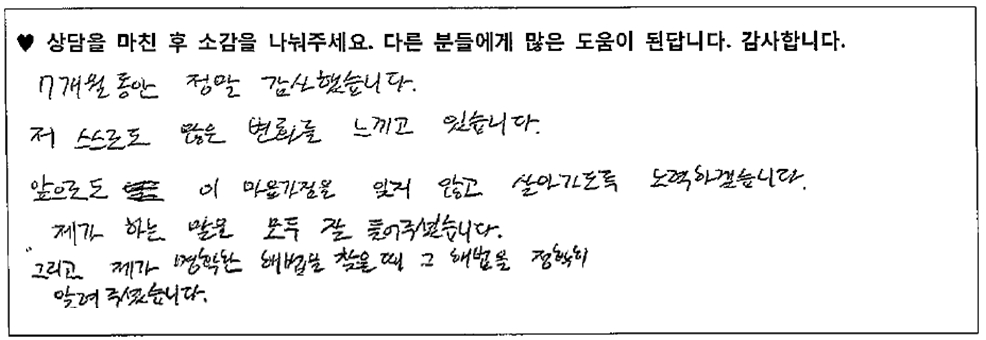 ♥ 상담을 마친 후 소감을 나눠주세요. 다른 분들에게 많은 도움이 된답니다. 감사합니다.
7개월 동안 정말 감사했습니다.
저 스스로도 많은 변화를 느끼고 있습니다.
앞으로도 이 마음가짐을 잊지 않고 살아가도록 노력하겠습니다.
제가 하는 말을 모두 잘 들어주셨습니다.
그리고 제가 명확한 해법을 찾을 때 그 해법을 정확히
알려 주셨습니다.